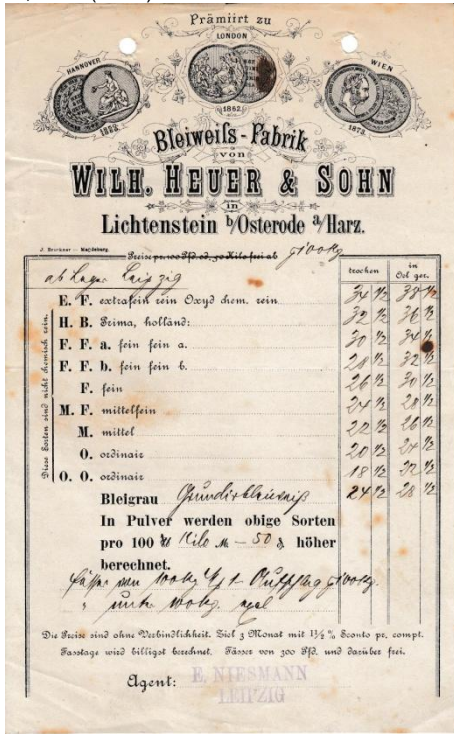 Prämiirt zu
HANNOVER
LONDON
WIEN
1862
1873
Bleiweiſs-Fabrik
von
WILH. HEUER & SOHN
in
Lichtenstein b/Osterode a/Harz.
J. Brückner - Magdeburg.
Preise pr. 100 Pfd. od. 50 Kilo frei ab
ab Lager Leipzig
trocken
in Oel ger.
Diese Sorten sind nicht chemisch rein.
E. F. extrafein rein Oxyd chem. rein 34 1/2 38 1/2
H. B. Prima, holländ: 32 1/2 36 1/2
F. F. a. fein fein a. 30 1/2 34 1/2
F. F. b. fein fein b. 28 1/2 32 1/2
F. fein 26 1/2 30 1/2
M. F. mittelfein 24 1/2 28 1/2
M. mittel 22 1/2 26 1/2
O. ordinair 20 1/2 24 1/2
O. O. ordinair 18 1/2 22 1/2
Bleigrau Grundirbleiweiß 24 1/2 28 1/2
In Pulver werden obige Sorten
pro 100 Kilo M - 50 ₰ höher
berechnet.
Fässer von 100 Kg
" unter 100 Kg.
Die Preise sind ohne Verbindlichkeit. Ziel 3 Monat mit 1½ % Sconto pr. compt.
Fasstage wird billigst berechnet. Fässer von 300 Pfd. und darüber frei.
Agent: E. NIESMANN
LEIPZIG